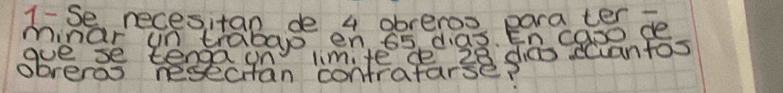 1- Se necesitan de 4 obreros para ter-
minar un trabajo en 65 dias. En caso de
que se tenga un limite de 28 dias ¿cuantos
obreros nesecitan contratarse?